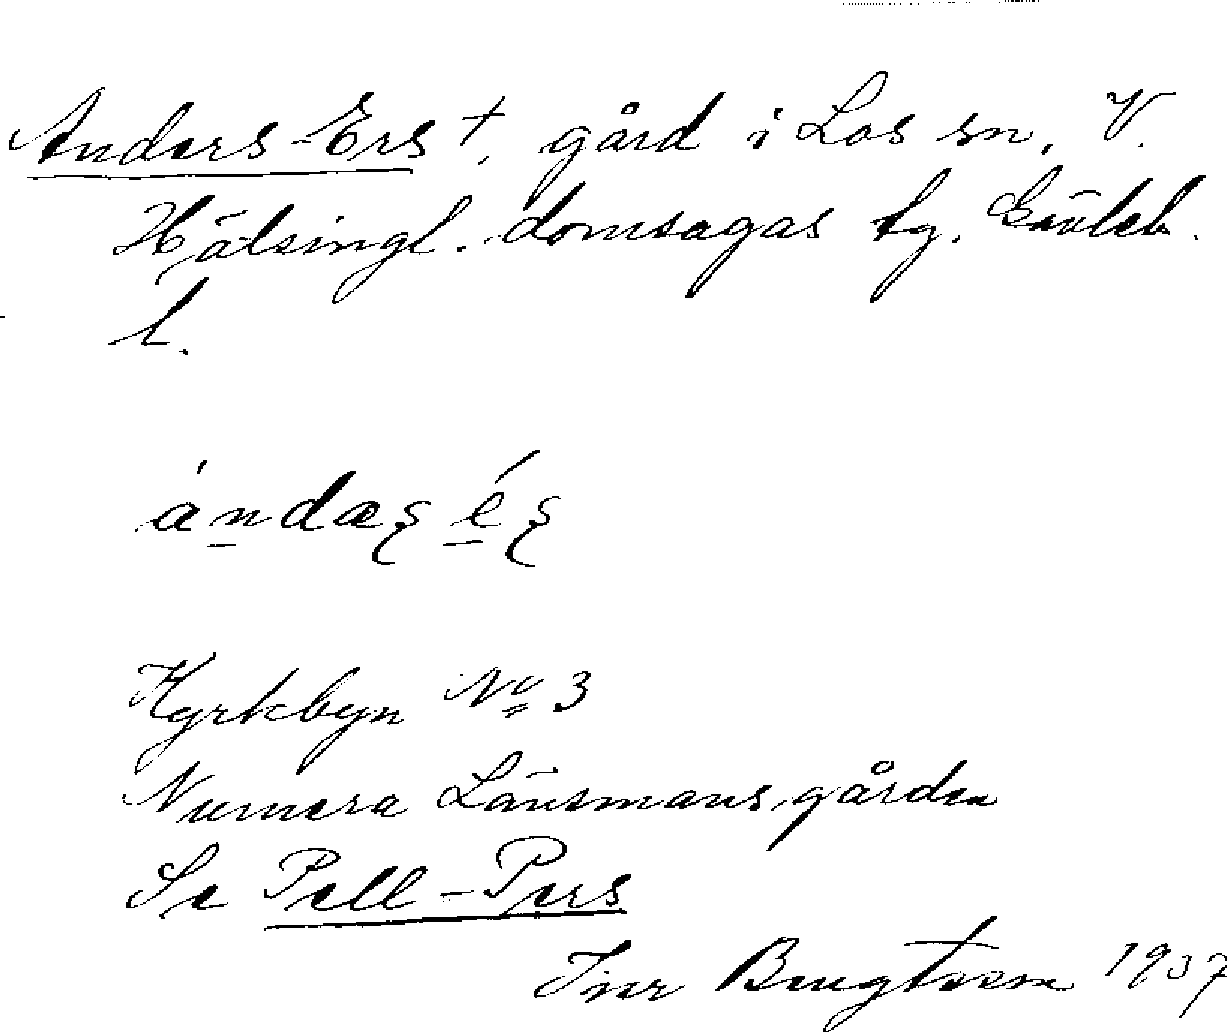 Anders-Ers †, gård i Los sn, V.
Hälsingl. domsagas tg. Gävleb.
l.
ándæș éș
Kyrkbyn No 3
Numera Länsmansgården
Se Pell-Pers
Ivar Bengtsson 1937